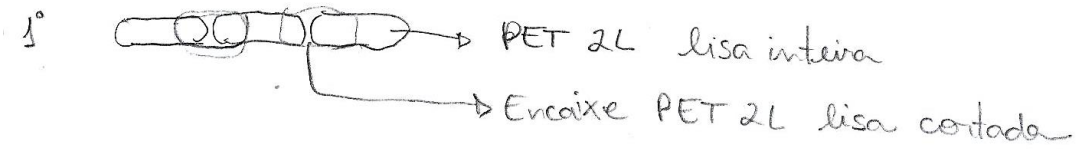 1°
PET 2L lisa inteira
Encaixe PET 2L lisa cortada